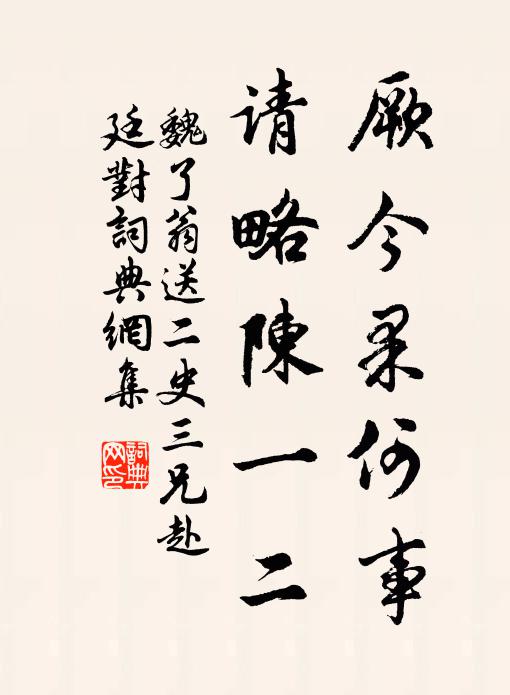 厥今果何事
请略陳一二
魏了翁送二史三兄赴
廷對詞典網集
詞典
网印